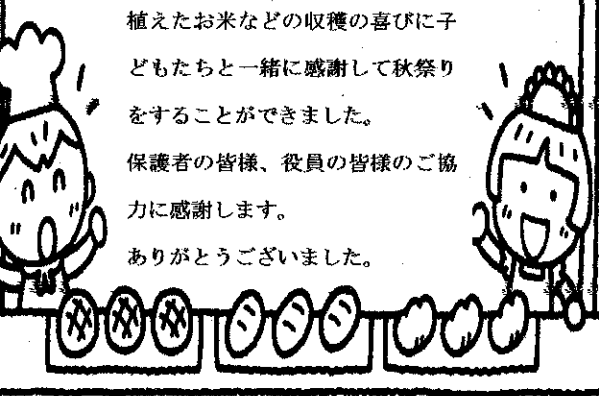 植えたお米などの収穫の喜びに子
どもたちと一緒に感謝して秋祭り
をすることができました。
保護者の皆様、役員の皆様のご協
力に感謝します。
ありがとうございました。